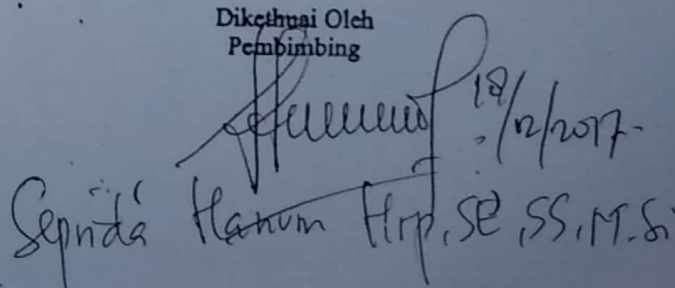 Dikethuai Oleh
Pembimbing
18/12/2017-
Seprida Hanum Hrp, SE, SS, M.Si